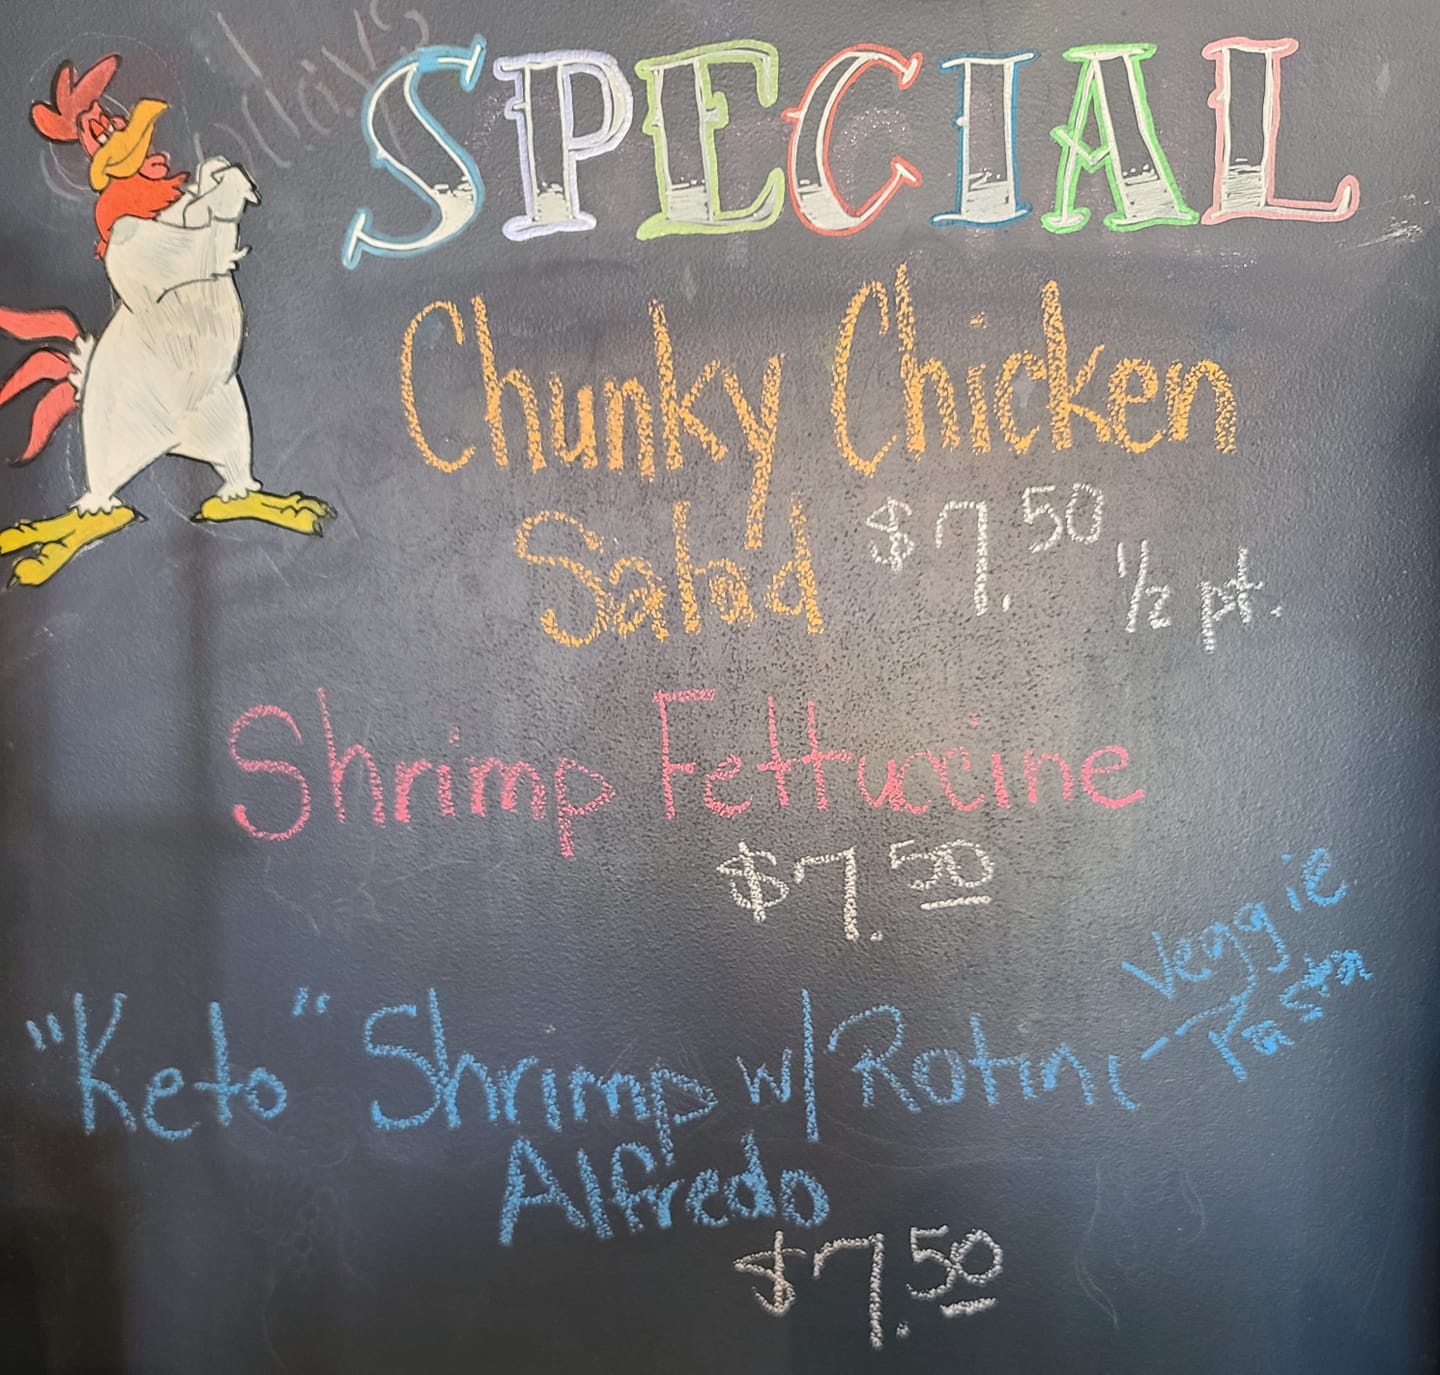 SPECIAL
Chunky Chicken
Salad $7.50
1/2 pt.
Shrimp Fettuccine
$7.50
"Keto" Shrimp w/ Rotini - Veggie
Pasta
Alfredo
$7.50